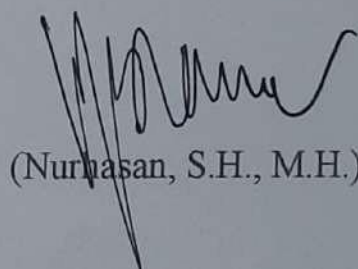 (Nurhasan, S.H., M.H.)